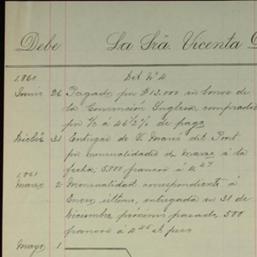 Debe La Srã. Vicenta
1860 Det Nº 4
Junio 26 Pagado por $13.000 en bonos de
la Conversión Inglesa comprados
por % á 46½% de pago
Dicbre 31 Entregas de V. Marié del Pont
por mensualidades de marzo á la
fecha, 5,000 francos á
1861
Marzo 2 Mensualidad correspondiente á
Enero último, entregada en 31 de
Diciembre próximo pasado, 500
francos á el peso
Mayo 1